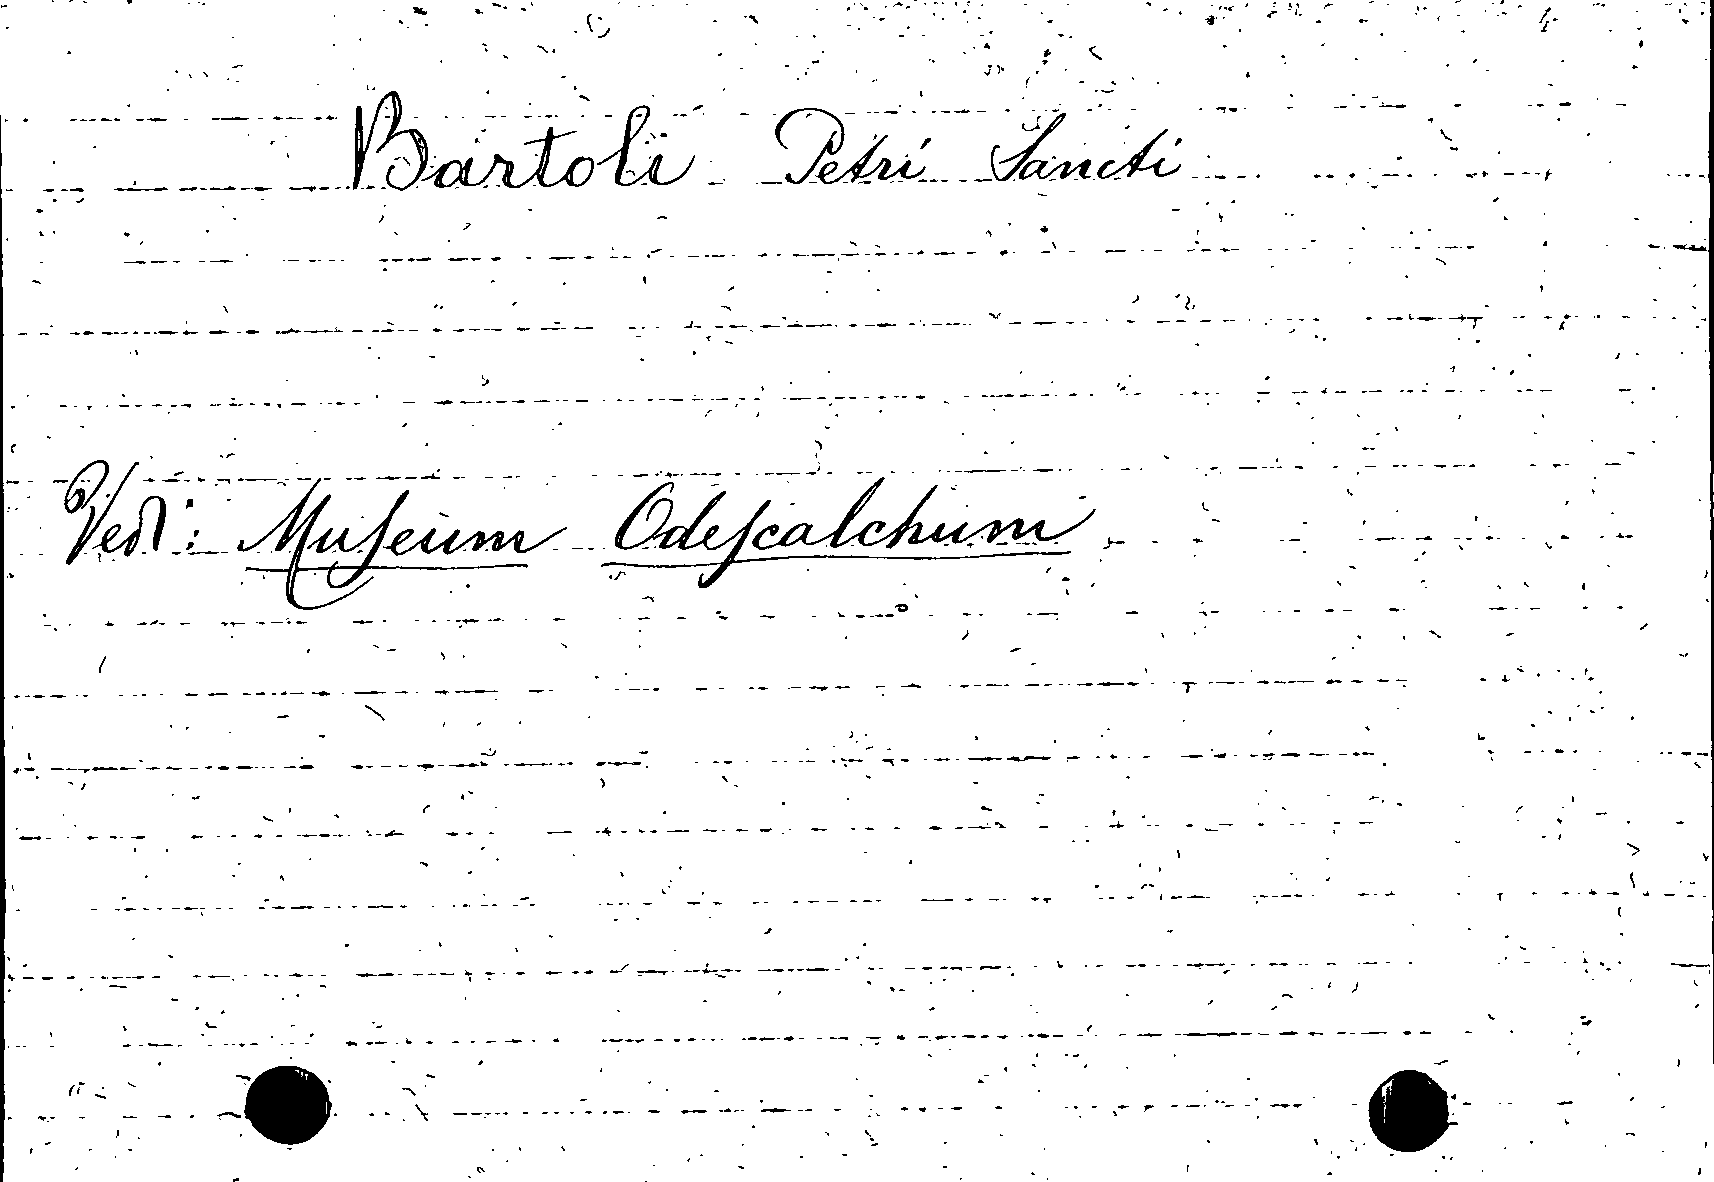 Bartoli Petri Sancti
Vedi: Muſeum Odeſcalchum